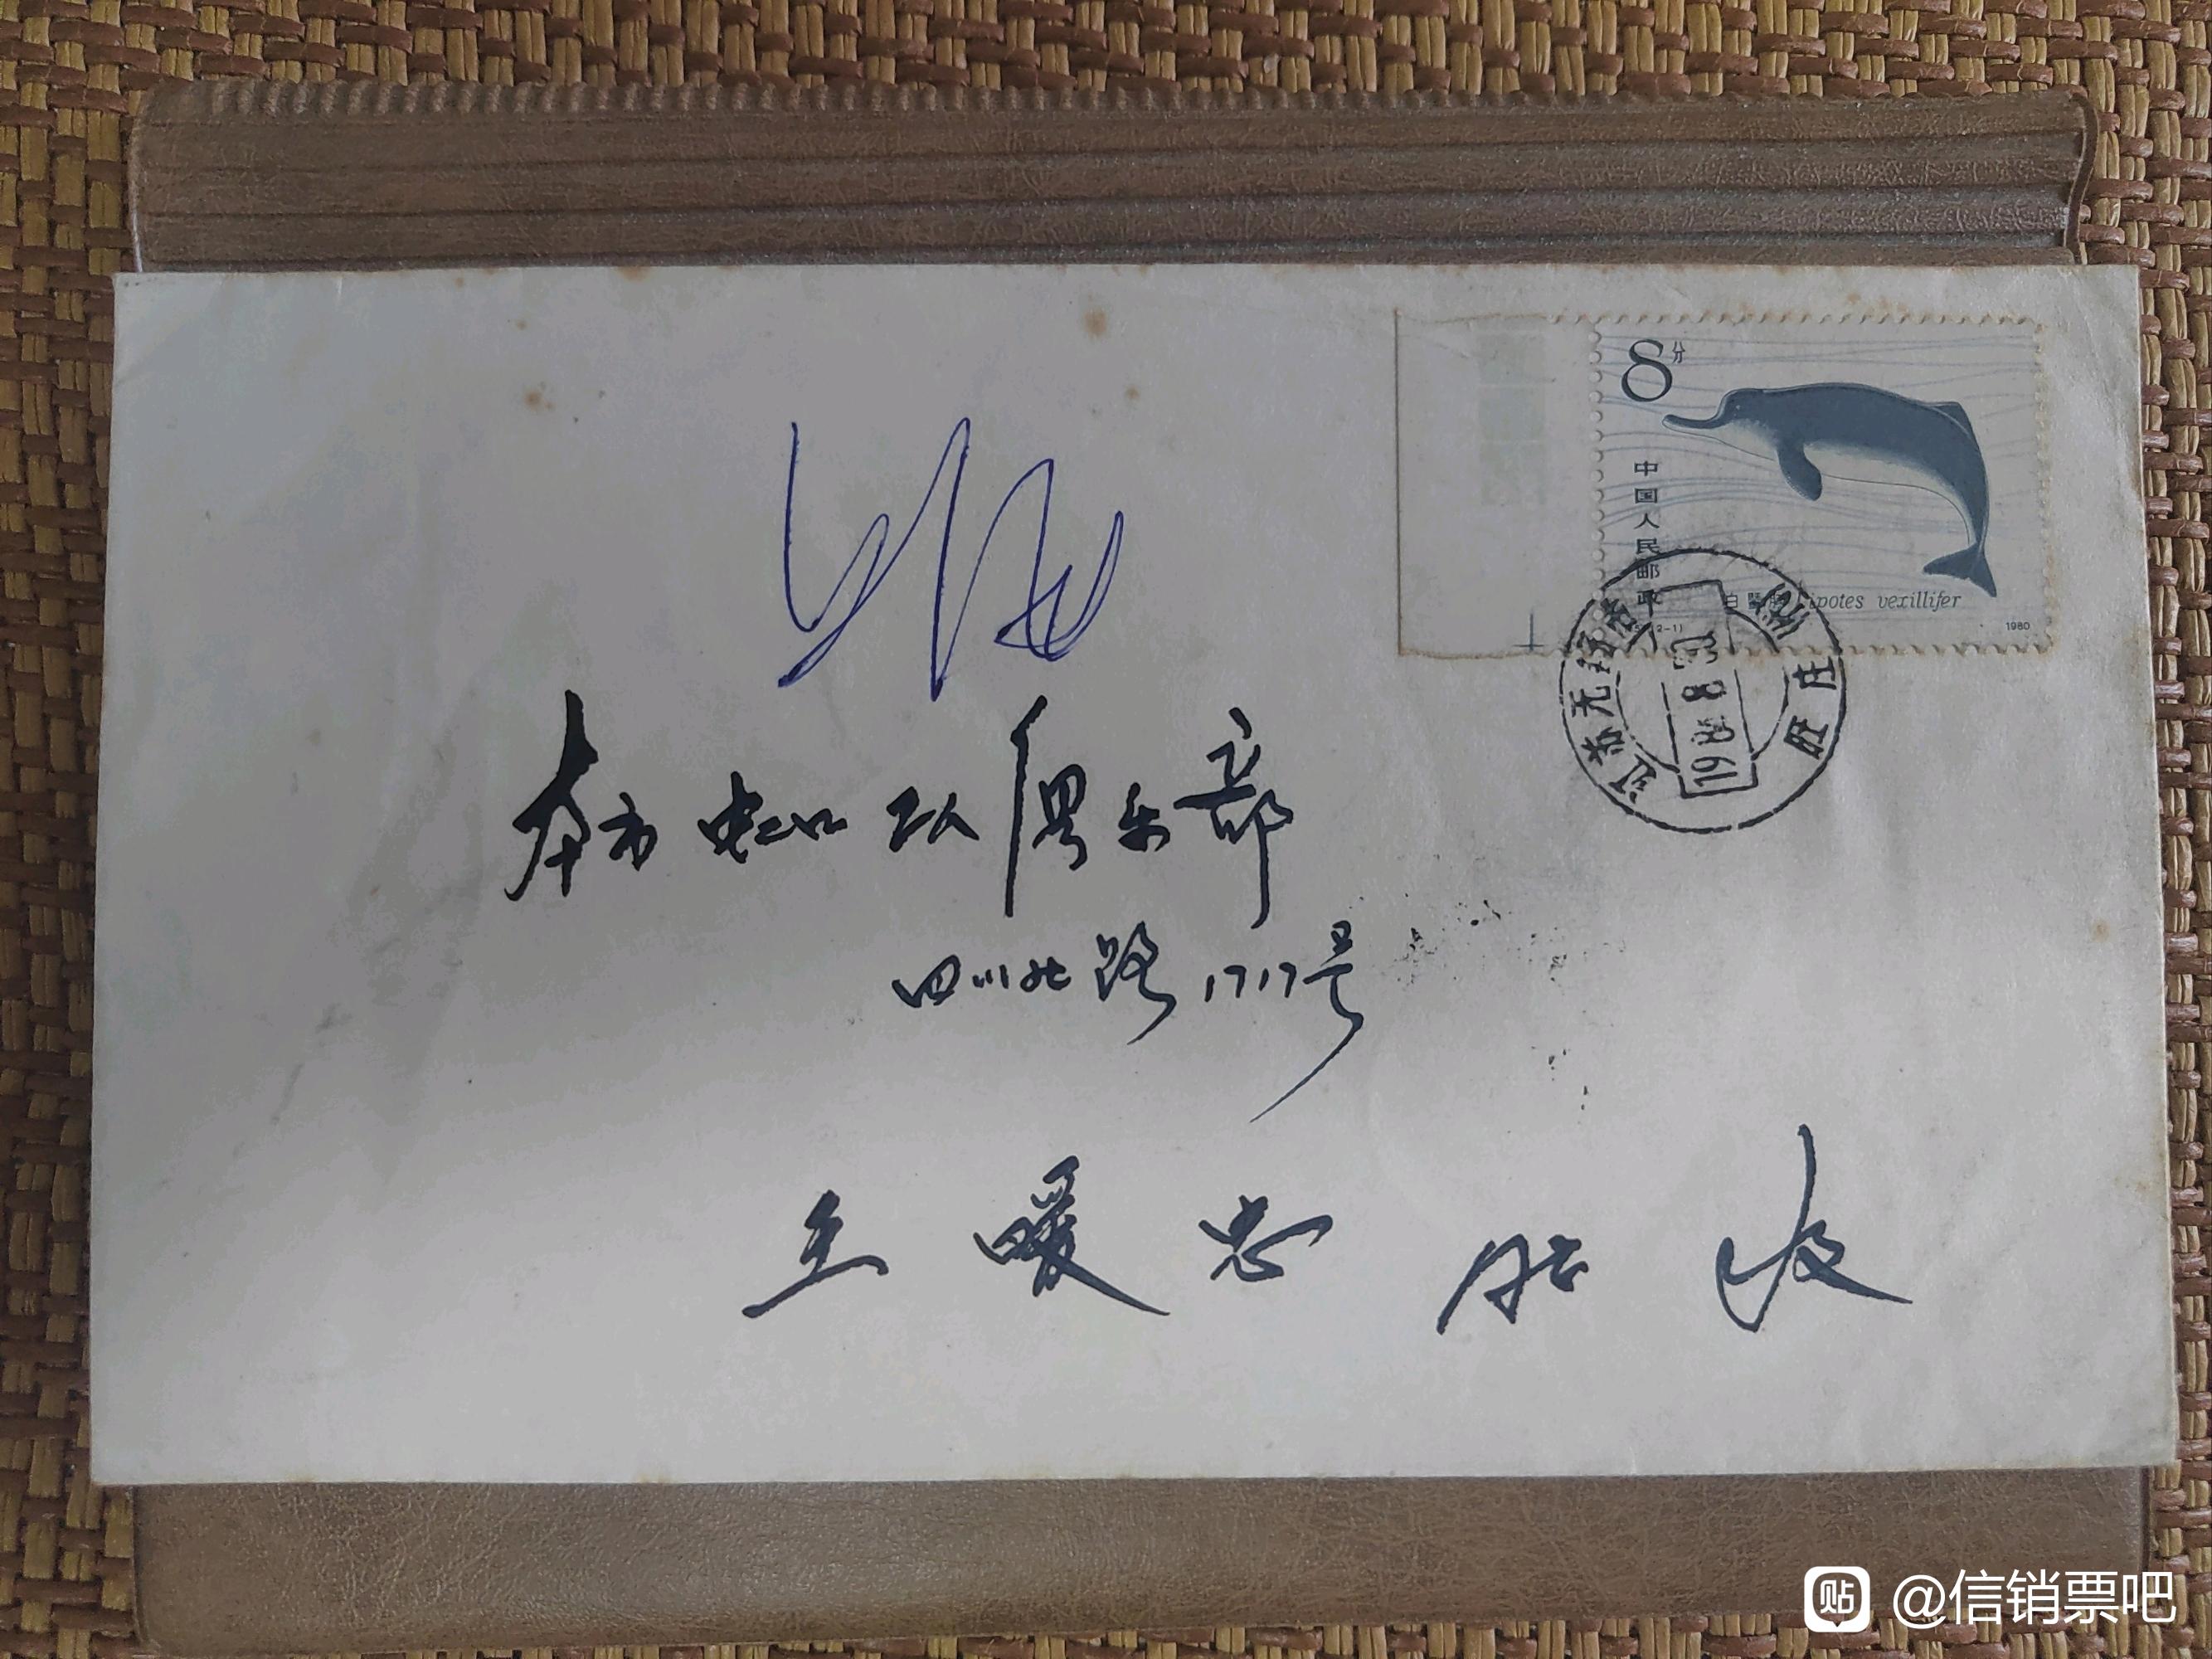 8分
中国人民邮政
白鱀豚 Lipotes vexillifer
1980
江苏无锡
旺庄
本市虹口工人俱乐部
四川北路1717号
王暖忠 启
贴 @信销票吧